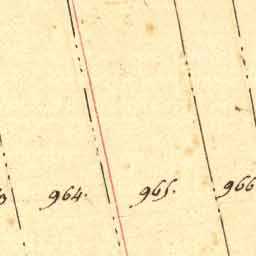 964. 965. 966